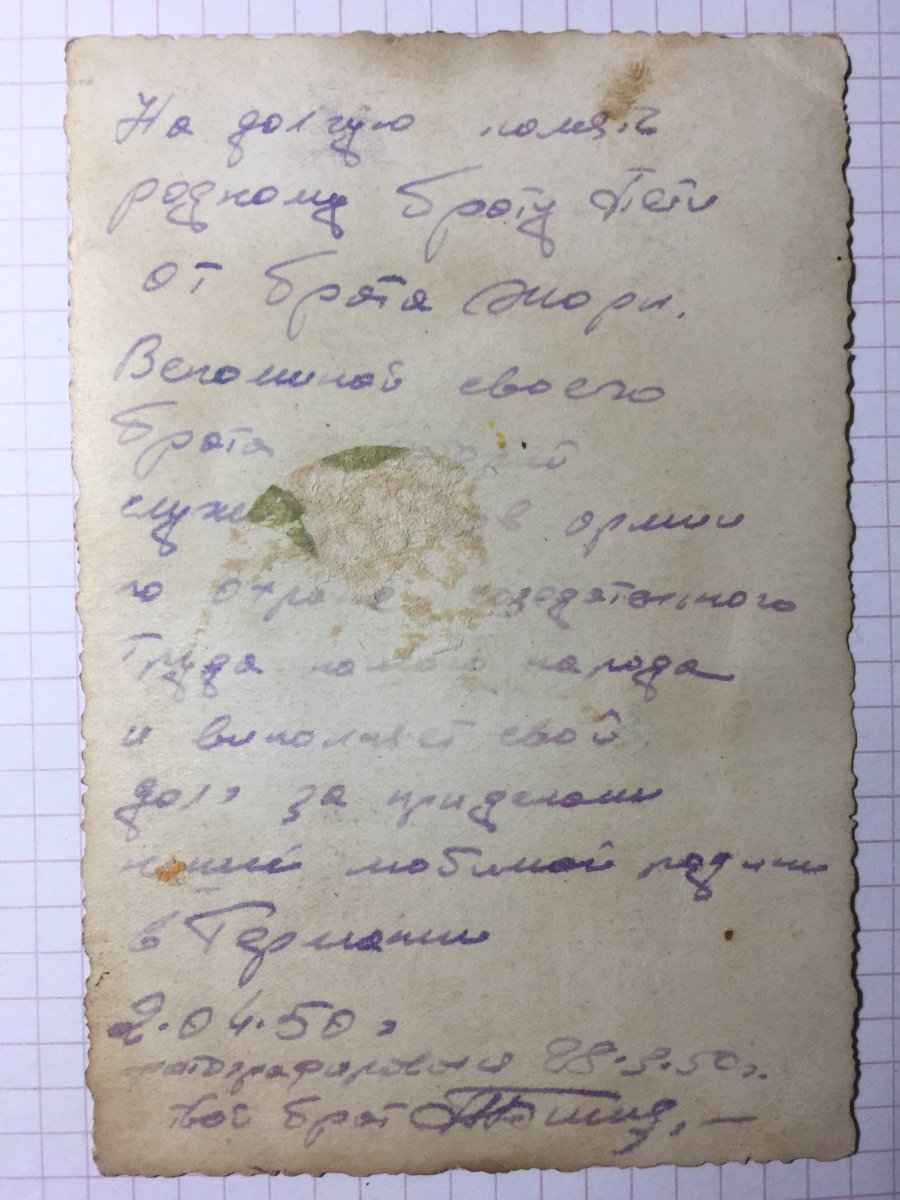 На долгую память
родному брату Пети
от брата Жоры.
Вспоминай своего
брата
в армии
по охране созедательного
труда нашего народа
и выполняет свой
долг за приделами
нашей любимой родины
в Германии
2.04.50 г
фотографировался 28.3.50 г.
твой брат